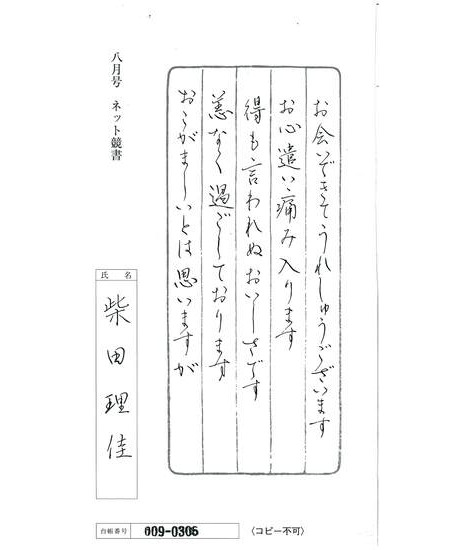 お会いできてうれしゅうございます
お心遣い痛み入ります
得も言われぬおいしさです
恙なく過ごしております
おこがましいとは思いますが
八月号 ネット競書
氏名
柴田理佳
台帳番号 009-0306
(コピー不可)